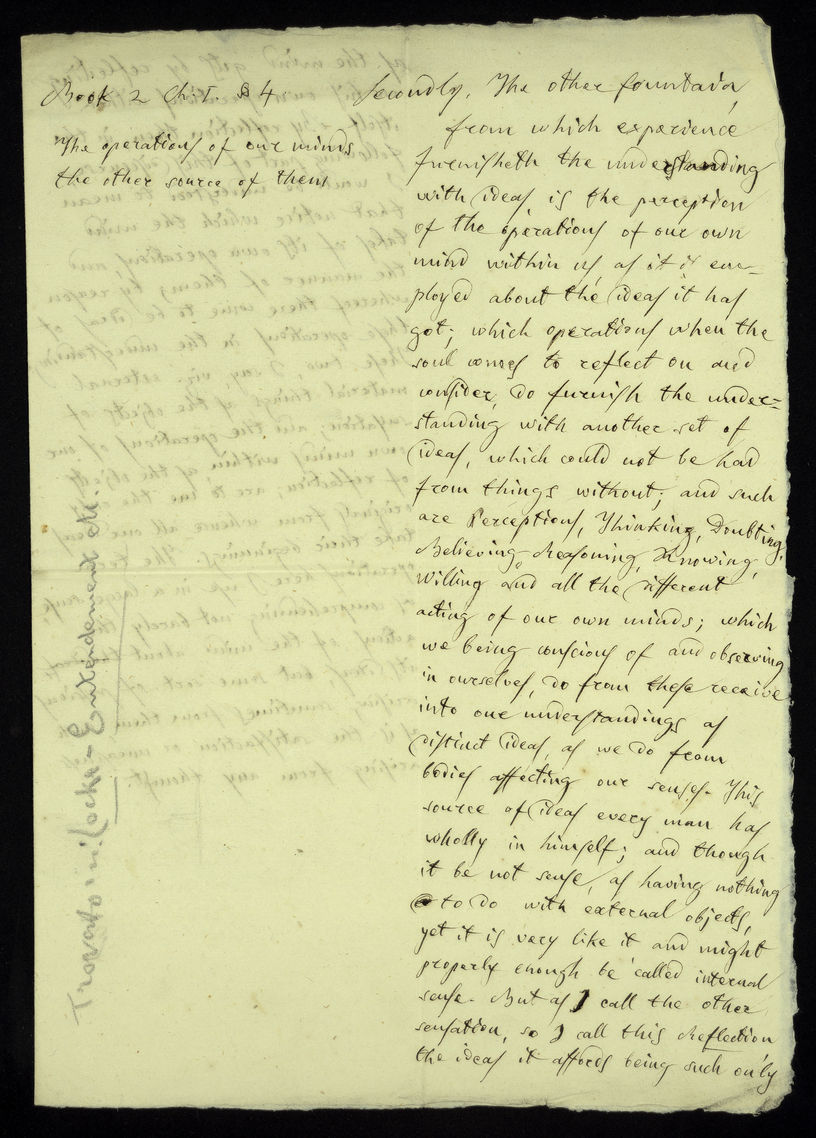 Book 2 Ch. I. § 4.
The operations of our minds
the other source of them
Secondly, The other fountain,
from which experience
furnisheth the understanding
with ideas is the perception
of the operations of our own
mind within us, as it is em-
ployed about the ideas it has
got; which operations when the
soul comes to reflect on and
consider, do furnish the under=
standing with another set of
ideas, which could not be had
from things without; and such
are Perceptions, Thinking, Doubting,
Believing, Reasoning, Knowing,
willing and all the different
acting of our own minds; which
we being conscious of and observing
in ourselves, do from these receive
into our understandings as
distinct ideas, as we do from
bodies affecting our senses. This
source of ideas every man has
wholly in himself; and though
it be not sense, as having nothing
to do with external objects,
yet it is very like it and might
properly enough be called internal
sense. But as I call the other
sensation, so I call this Reflection
the ideas it affords being such only
Trovato in: Locke - Entendement etc.